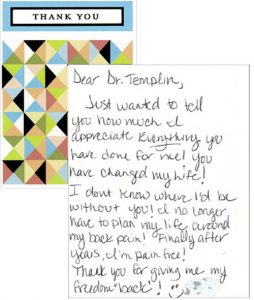 THANK YOU
Dear Dr. Templin,
Just wanted to tell
you how much I
appreciate Everything you
have done for me! You
have changed my life!
I dont know where I'd be
without you! I no longer
have to plan my life around
my back pain! Finally after
years, I'm pain free!
Thank you for giving me my
freedom "back"!